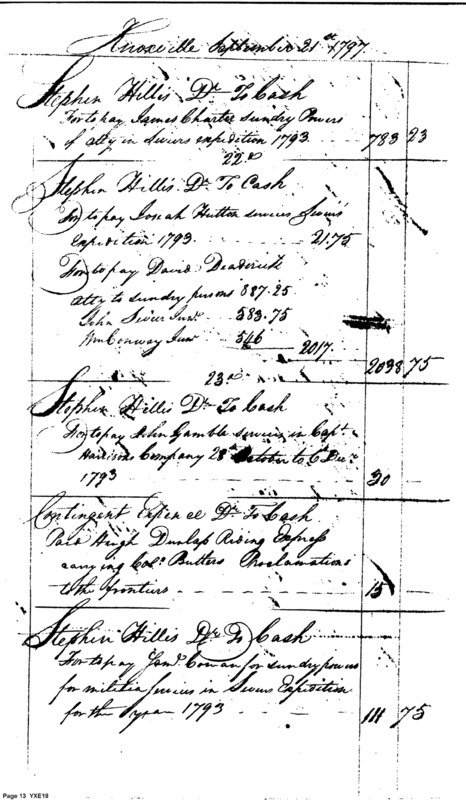 Knoxville September 21st 1797
Stephen Hillis Dr To Cash
For to pay James Charter sundry Powers
of atty in Seviers expedition 1793 783 23
22d
Stephen Hillis Dr To Cash
For to pay Josiah Hutton services Seviers
Expedition 1793 21.75
For to pay David Deaderick
atty to sundry persons 887.25
John Sevier Junr 583.75
Wm Conway Junr 546 2017
2038 75
23d
Stephen Hillis Dr To Cash
For to pay John Gamble services in Capt
Harrisons Company 28th October to 6th Decr
1793 30
Contingent Expence Dr To Cash
Paid Hugh Dunlap Riding Express
carrying Colo Butlers Proclamations
to the frontiers 15
Stephen Hillis Dr To Cash
For to pay Cowan for sundry powers
for militia services in Seviers Expedition
for the year 1793 111 75
Page 13 YXE18